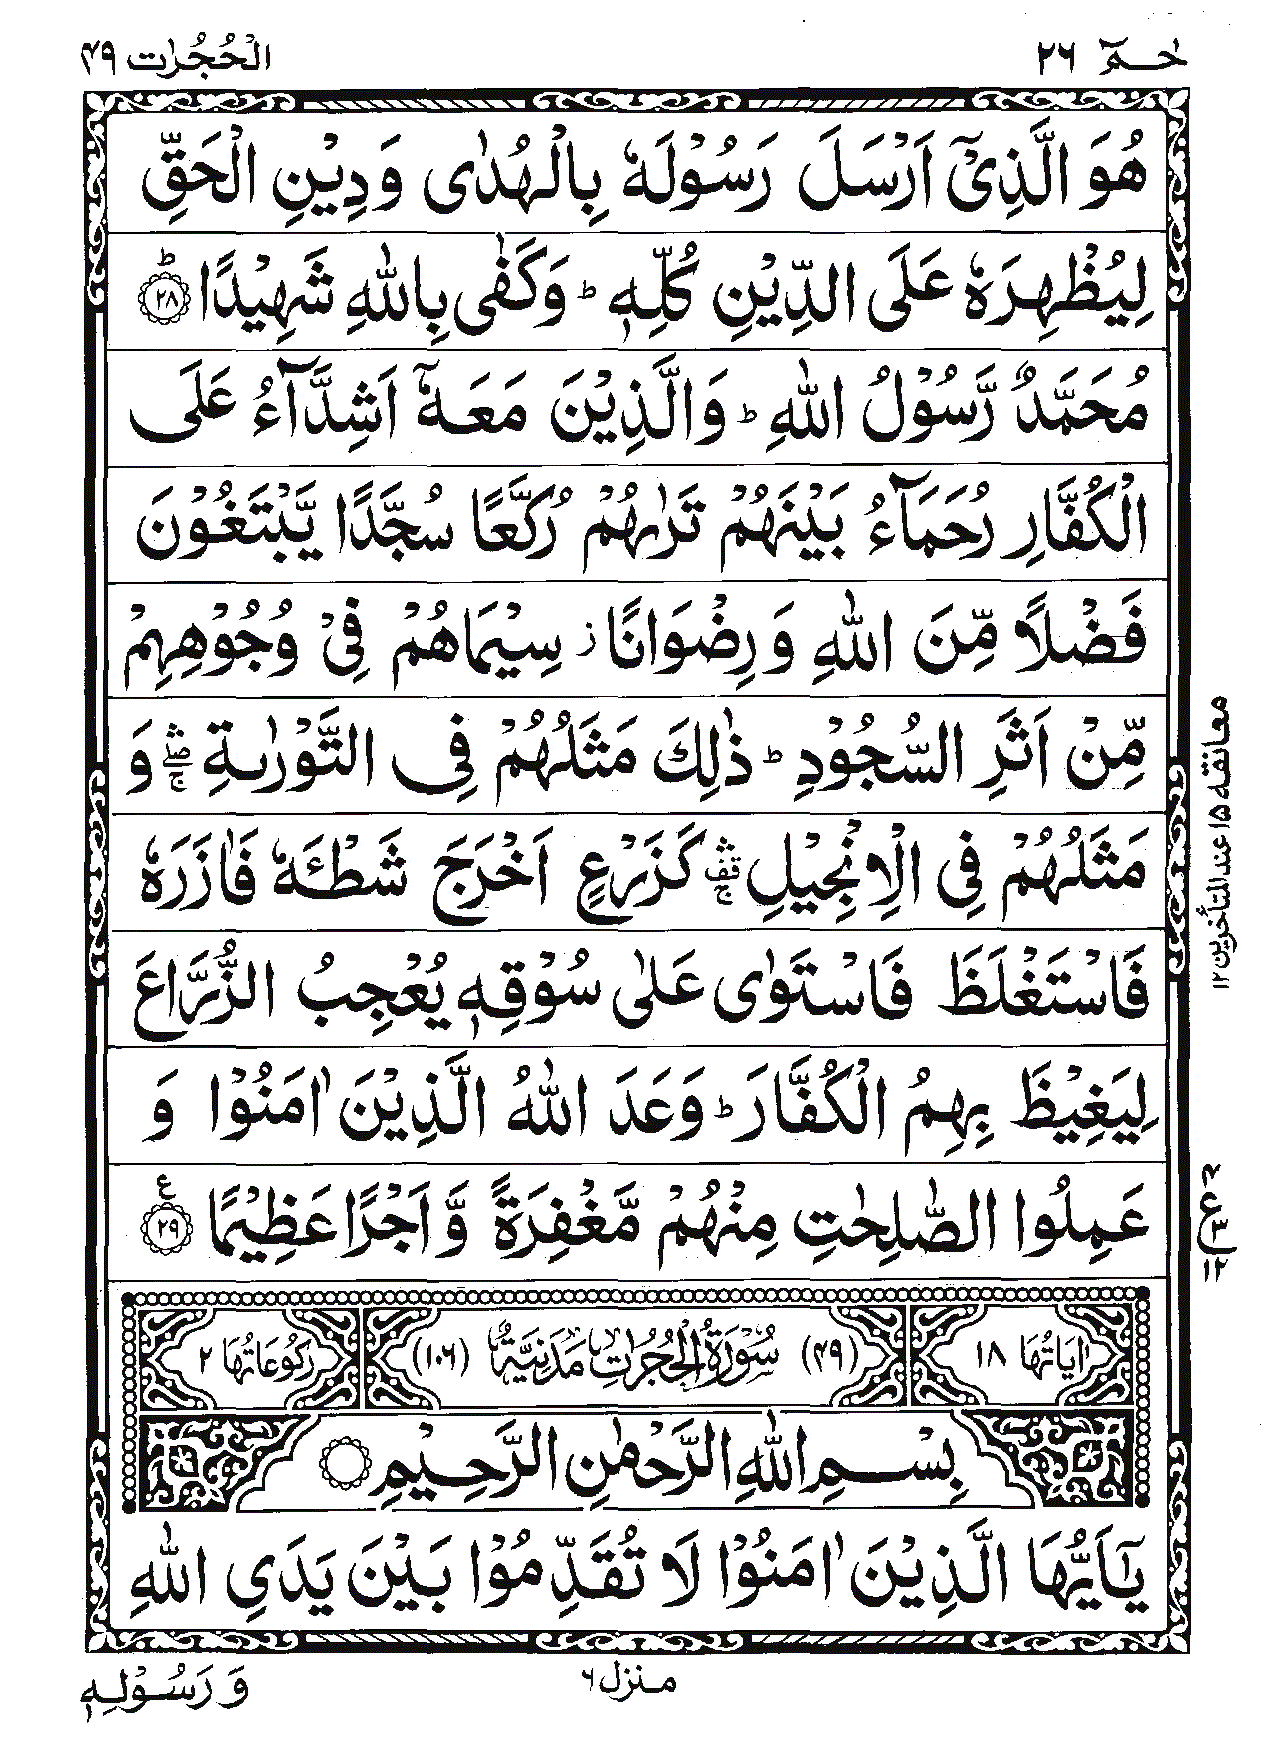 حٰمٓ ٢٦
الْحُجُرٰت ٤٩
هُوَ الَّذِیْۤ اَرْسَلَ رَسُوْلَهٗ بِالْهُدٰی وَ دِیْنِ الْحَقِّ
لِیُظْهِرَهٗ عَلَی الدِّیْنِ كُلِّهٖ ؕ وَ كَفٰی بِاللّٰهِ شَهِیْدًا ؕ ﴿۲۸﴾
مُحَمَّدٌ رَّسُوْلُ اللّٰهِ ؕ وَ الَّذِیْنَ مَعَهٗۤ اَشِدَّآءُ عَلَی
الْكُفَّارِ رُحَمَآءُ بَیْنَهُمْ تَرٰىهُمْ رُكَّعًا سُجَّدًا یَّبْتَغُوْنَ
فَضْلًا مِّنَ اللّٰهِ وَ رِضْوَانًا ؗ سِیْمَاهُمْ فِیْ وُجُوْهِهِمْ
مِّنْ اَثَرِ السُّجُوْدِ ؕ ذٰلِكَ مَثَلُهُمْ فِی التَّوْرٰىةِ ۛۖۚ وَ
مَثَلُهُمْ فِی الْاِنْجِیْلِ ۛ۫ۚ كَزَرْعٍ اَخْرَجَ شَطْـَٔهٗ فَاٰزَرَهٗ
فَاسْتَغْلَظَ فَاسْتَوٰی عَلٰی سُوْقِهٖ یُعْجِبُ الزُّرَّاعَ
لِیَغِیْظَ بِهِمُ الْكُفَّارَ ؕ وَعَدَ اللّٰهُ الَّذِیْنَ اٰمَنُوْا وَ
عَمِلُوا الصّٰلِحٰتِ مِنْهُمْ مَّغْفِرَةً وَّ اَجْرًا عَظِیْمًا ع ﴿۲۹﴾
معانقه ١٥ عند المتأخرين ١٢
٤
ع
٣
١٢
اٰیَاتُهَا ١٨
(٤٩) سُوْرَةُ الْحُجُرٰتِ مَدَنِیَّةٌ (١٠٦)
رُكُوْعَاتُهَا ٢
بِسْمِ اللّٰهِ الرَّحْمٰنِ الرَّحِیْمِ
یٰۤاَیُّهَا الَّذِیْنَ اٰمَنُوْا لَا تُقَدِّمُوْا بَیْنَ یَدَیِ اللّٰهِ
منزل ٦
وَ رَسُوْلِهٖ